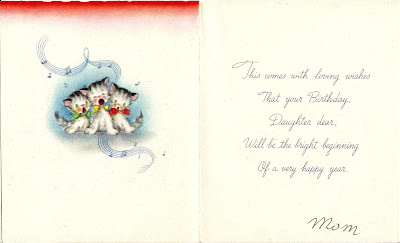 This comes with loving wishes
That your Birthday,
Daughter dear,
Will be the bright beginning
Of a very happy year.
Mom